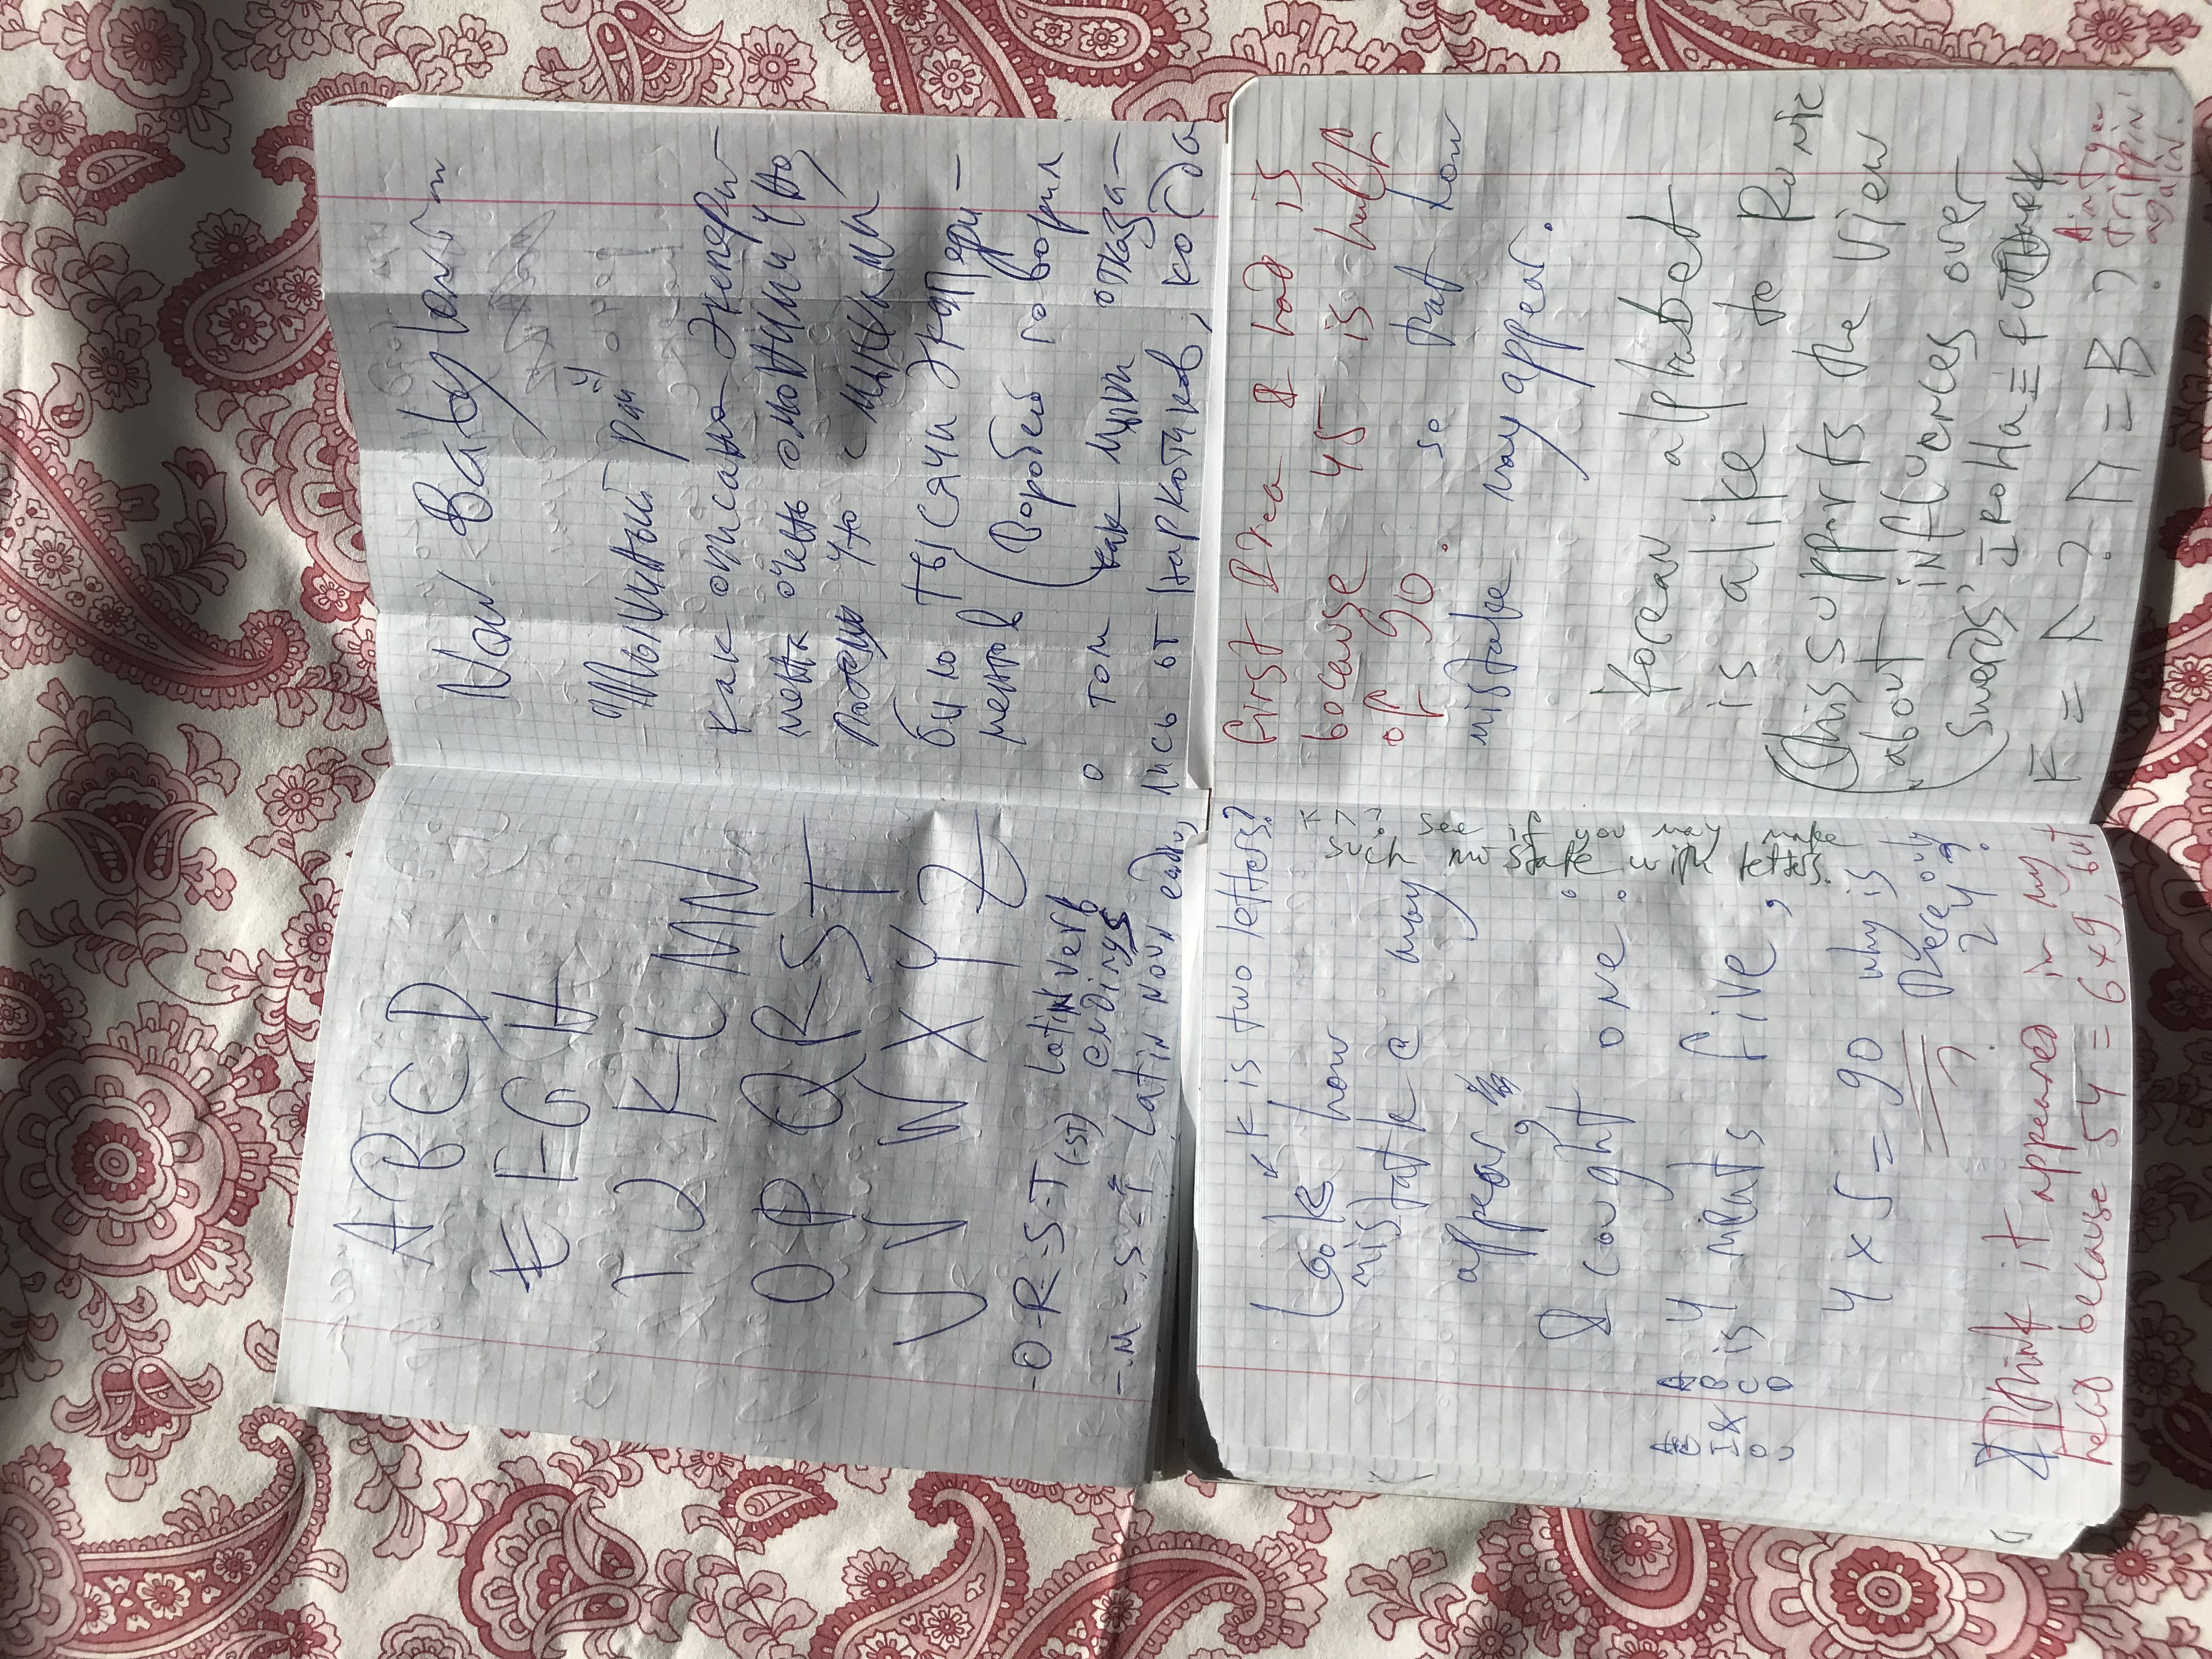 A B C D
E F G H
I J K L M N
O P Q R S T
U V W X Y Z
-O-R-S-T(-ST) Latin verb
endings
-M-S-I Latin noun
New Babylonian
"Мышиный рай"
как описано экспери-
мента очень
потому что с мышами
было тысячи экспери-
ментов (Воробей говорил
о том как мыши отказа-
лись от наркотиков, когда
K is two letters?
Look how
mistatk e may
appear,
I caught one:
A E I O U
&
A B C D
is 4 meats five,
4 x 5 = 90 why is
there only
24?
?
KΛ? see if you may make
such mistake with letters.
I think it appeared in my
head because 54 = 6x9, but
first Idea I had is
because 45 is half
of 90. so that how
mistake may appear.
Korean alphabet
is alike to Runic
(this supports the view
about influences over
swords' IROHa = FUTHARK
F = Λ? Λ = B?
Aint you
trippin'
again.